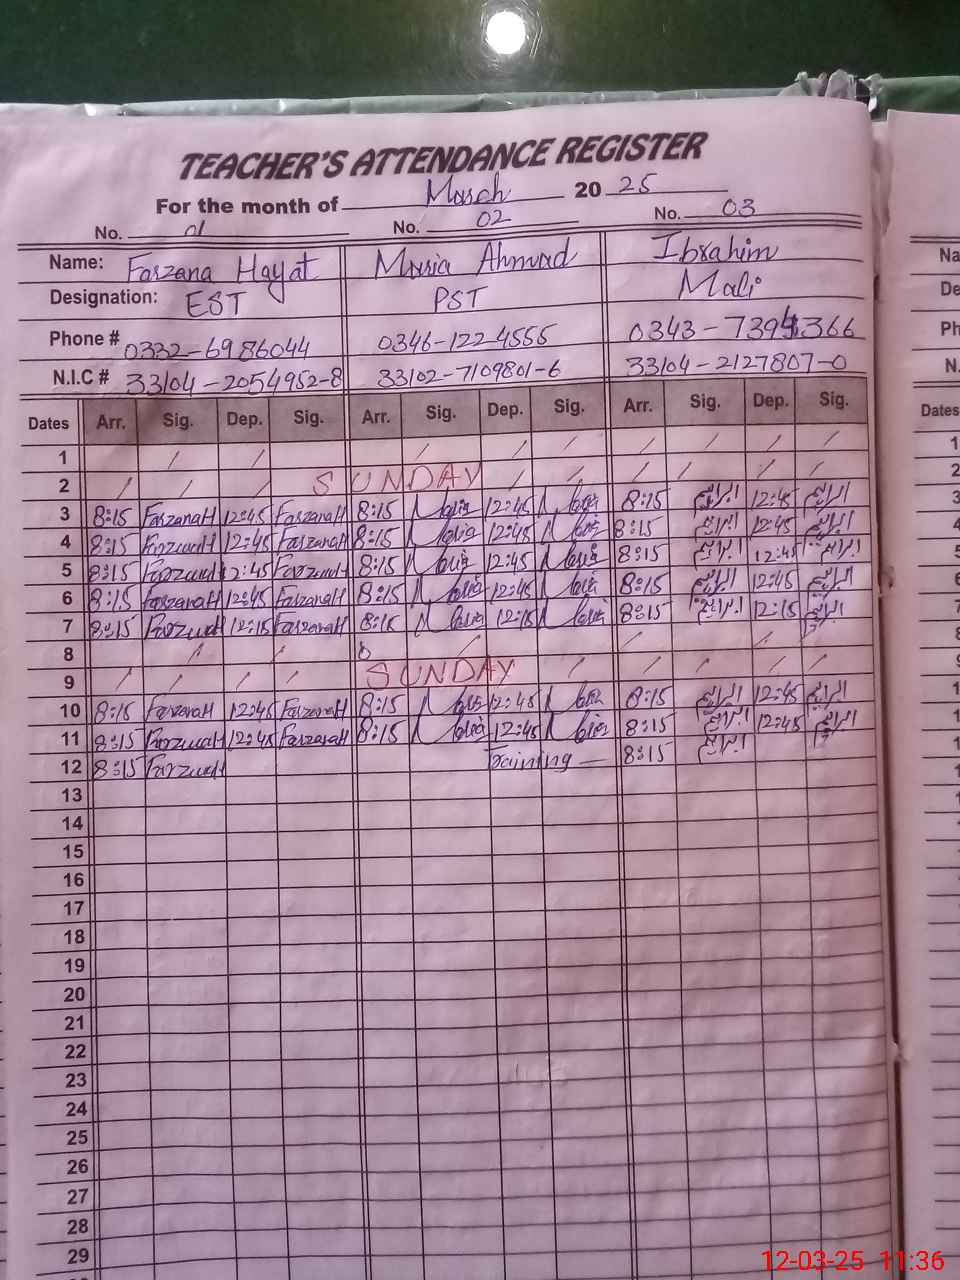 TEACHER'S ATTENDANCE REGISTER
For the month of March 2025
No. 01 No. 02 No. 03
Name: Farzana Hayat Maria Ahmad Ibrahim
Designation: EST PST Mali
Phone # 0332-6986044 0346-1224555 0343-7394366
N.I.C # 33104-2054952-8 33102-7109801-6 33104-2127807-0
Dates Arr. Sig. Dep. Sig. Arr. Sig. Dep. Sig. Arr. Sig. Dep. Sig.
1 / / / / / / / / / /
2 / / / SUNDAY / / / / / /
3 8:15 FarzanaH 12:45 FarzanaH 8:15 12:45 8:15 ابراہیم 12:45 ابراہیم
4 8:15 FarzanaH 12:45 FarzanaH 8:15 12:45 8:15 ابراہیم 12:45 ابراہیم
5 8:15 FarzanaH 12:45 FarzanaH 8:15 12:45 8:15 ابراہیم 12:45 ابراہیم
6 8:15 FarzanaH 12:45 FarzanaH 8:15 12:45 8:15 ابراہیم 12:45 ابراہیم
7 8:15 FarzanaH 12:15 FarzanaH 8:15 12:15 8:15 ابراہیم 12:15 ابراہیم
8 / / / / / /
9 / / / / SUNDAY / / / / /
10 8:15 FarzanaH 12:45 FarzanaH 8:15 12:45 8:15 ابراہیم 12:45 ابراہیم
11 8:15 FarzanaH 12:45 FarzanaH 8:15 12:45 8:15 ابراہیم 12:45 ابراہیم
12 8:15 FarzanaH Training — 8:15 ابراہیم
13
14
15
16
17
18
19
20
21
22
23
24
25
26
27
28
29
Na
De
Ph
N.
Dates
12-03-25 11:36